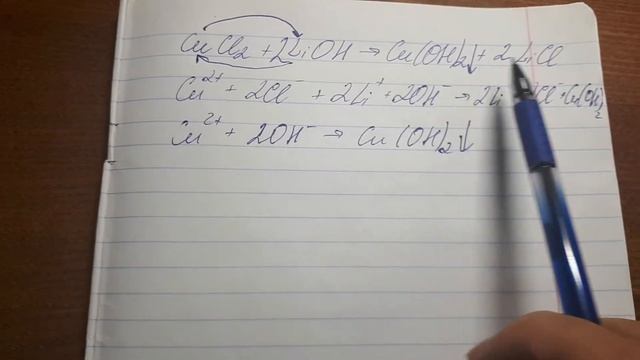 CuCl₂ + 2LiOH → Cu(OH)₂↓ + 2LiCl
Cu²⁺ + 2Cl⁻ + 2Li⁺ + 2OH⁻ → 2Li Cl⁻ + Cu(OH)₂
Cu²⁺ + 2OH⁻ → Cu(OH)₂↓